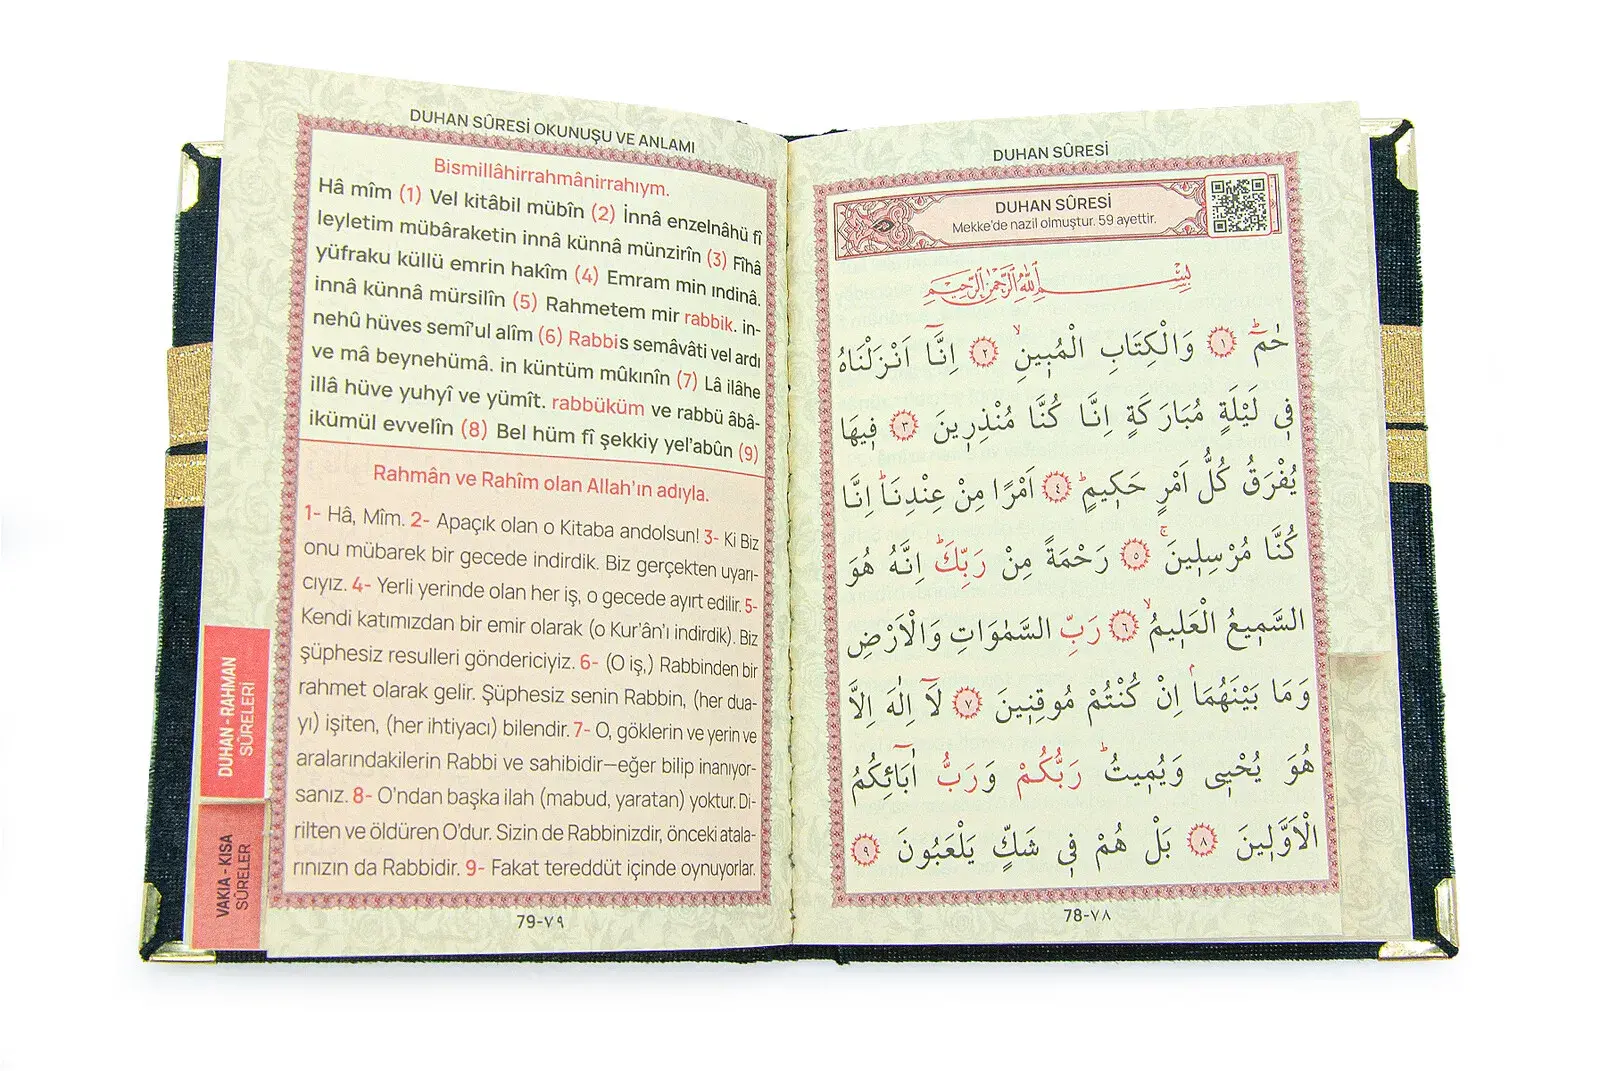 DUHAN SÛRESİ OKUNUŞU VE ANLAMI
Bismillâhirrahmânirrahıym.
Hâ mîm (1) Vel kitâbil mübîn (2) İnnâ enzelnâhü fî
leyletim mübâraketin innâ künnâ münzirîn (3) Fîhâ
yüfraku küllü emrin hakîm (4) Emram min ındinâ.
innâ künnâ mürsilîn (5) Rahmetem mir rabbik. in-
nehû hüves semî'ul alîm (6) Rabbis semâvâti vel ardı
ve mâ beynehümâ. in küntüm mûkınîn (7) Lâ ilâhe
illâ hüve yuhyî ve yümît. rabbüküm ve rabbü âbâ-
ikümül evvelîn (8) Bel hüm fî şekkiy yel'abûn (9)
Rahmân ve Rahîm olan Allah'ın adıyla.
1- Hâ, Mîm. 2- Apaçık olan o Kitaba andolsun! 3- Ki Biz
onu mübarek bir gecede indirdik. Biz gerçekten uyarı-
cıyız. 4- Yerli yerinde olan her iş, o gecede ayırt edilir. 5-
Kendi katımızdan bir emir olarak (o Kur'ân'ı indirdik). Biz
şüphesiz resulleri göndericiyiz. 6- (O iş,) Rabbinden bir
rahmet olarak gelir. Şüphesiz senin Rabbin, (her dua-
yı) işiten, (her ihtiyacı) bilendir. 7- O, göklerin ve yerin ve
aralarındakilerin Rabbi ve sahibidir—eğer bilip inanıyor-
sanız. 8- O'ndan başka ilah (mabud, yaratan) yoktur. Di-
rilten ve öldüren O'dur. Sizin de Rabbinizdir, önceki atala-
rınızın da Rabbidir. 9- Fakat tereddüt içinde oynuyorlar.
79-٧٩
DUHAN - RAHMAN
SÛRELERİ
VAKIA - KISA
SÛRELER
DUHAN SÛRESİ
DUHAN SÛRESİ
Mekke'de nazil olmuştur. 59 ayettir.
بِسْمِ اللّٰهِ الرَّحْمٰنِ الرَّحٖيمِ
حٰمٓ ۚ ﴿١﴾ وَالْكِتَابِ الْمُبٖينِ ۙ ﴿٢﴾ اِنَّٓا اَنْزَلْنَاهُ
فٖي لَيْلَةٍ مُبَارَكَةٍ اِنَّا كُنَّا مُنْذِرٖينَ ﴿٣﴾ فٖيهَا
يُفْرَقُ كُلُّ اَمْرٍ حَكٖيمٍ ؕ ﴿٤﴾ اَمْرًا مِنْ عِنْدِنَا ؕ اِنَّا
كُنَّا مُرْسِلٖينَ ۚ ﴿٥﴾ رَحْمَةً مِنْ رَبِّكَ ؕ اِنَّهُ هُوَ
السَّمٖيعُ الْعَلٖيمُ ۙ ﴿٦﴾ رَبِّ السَّمٰوَاتِ وَالْاَرْضِ
وَمَا بَيْنَهُمَا ۢ اِنْ كُنْتُمْ مُوقِنٖينَ ﴿٧﴾ لَٓا اِلٰهَ اِلَّا
هُوَ يُحْيٖى وَيُمٖيتُ ؕ رَبُّكُمْ وَرَبُّ اٰبَٓائِكُمُ
الْاَوَّلٖينَ ﴿٨﴾ بَلْ هُمْ فٖي شَكٍّ يَلْعَبُونَ ﴿٩﴾
78-٧٨